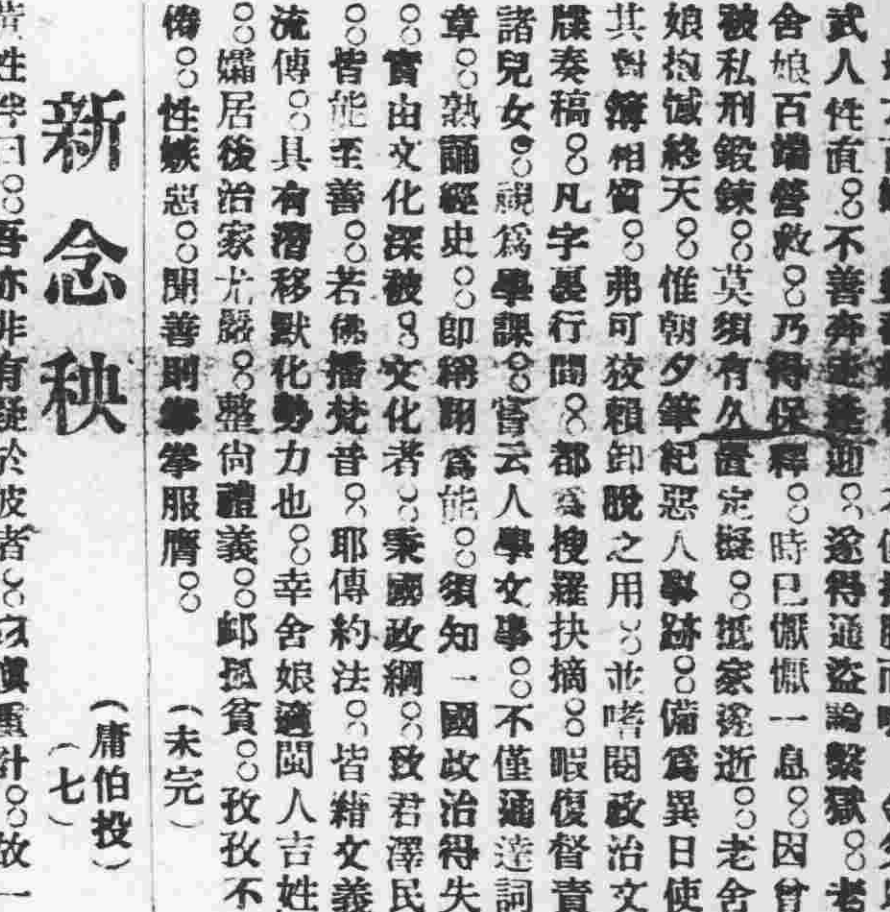 武人性直。不善奔走逢迎。遂得通盜論繫獄。老
舍娘百端營救。乃得保釋。時已懨懨一息。因曾
被私刑鍛鍊。莫須有久置定擬。抵家遂逝。老舍
娘抱憾終天。惟朝夕筆紀惡人事跡。備爲異日使
其對簿相質。弗可狡賴卸脫之用。並嗜閱政治文
牒奏稿。凡字裏行間。都爲搜羅抉摘。暇復督責
諸兒女。視爲學課。嘗云人學文事。不僅通達詞
章。熟誦經史。卽稱翊爲能。須知一國政治得失
。實由文化深被。文化者。秉國政綱。致君澤民
。皆能至善。若佛播梵音。耶傳約法。皆藉文義
流傳。具有潛移默化勢力也。幸舍娘適閩人吉姓
。孀居後治家尤嚴。整尙禮義。卹孤貧。孜孜不
倦。性嫉惡。聞善則拳拳服膺。（未完）
新念秧
（庸伯投）
（七）
吾亦非有疑於彼者
故一